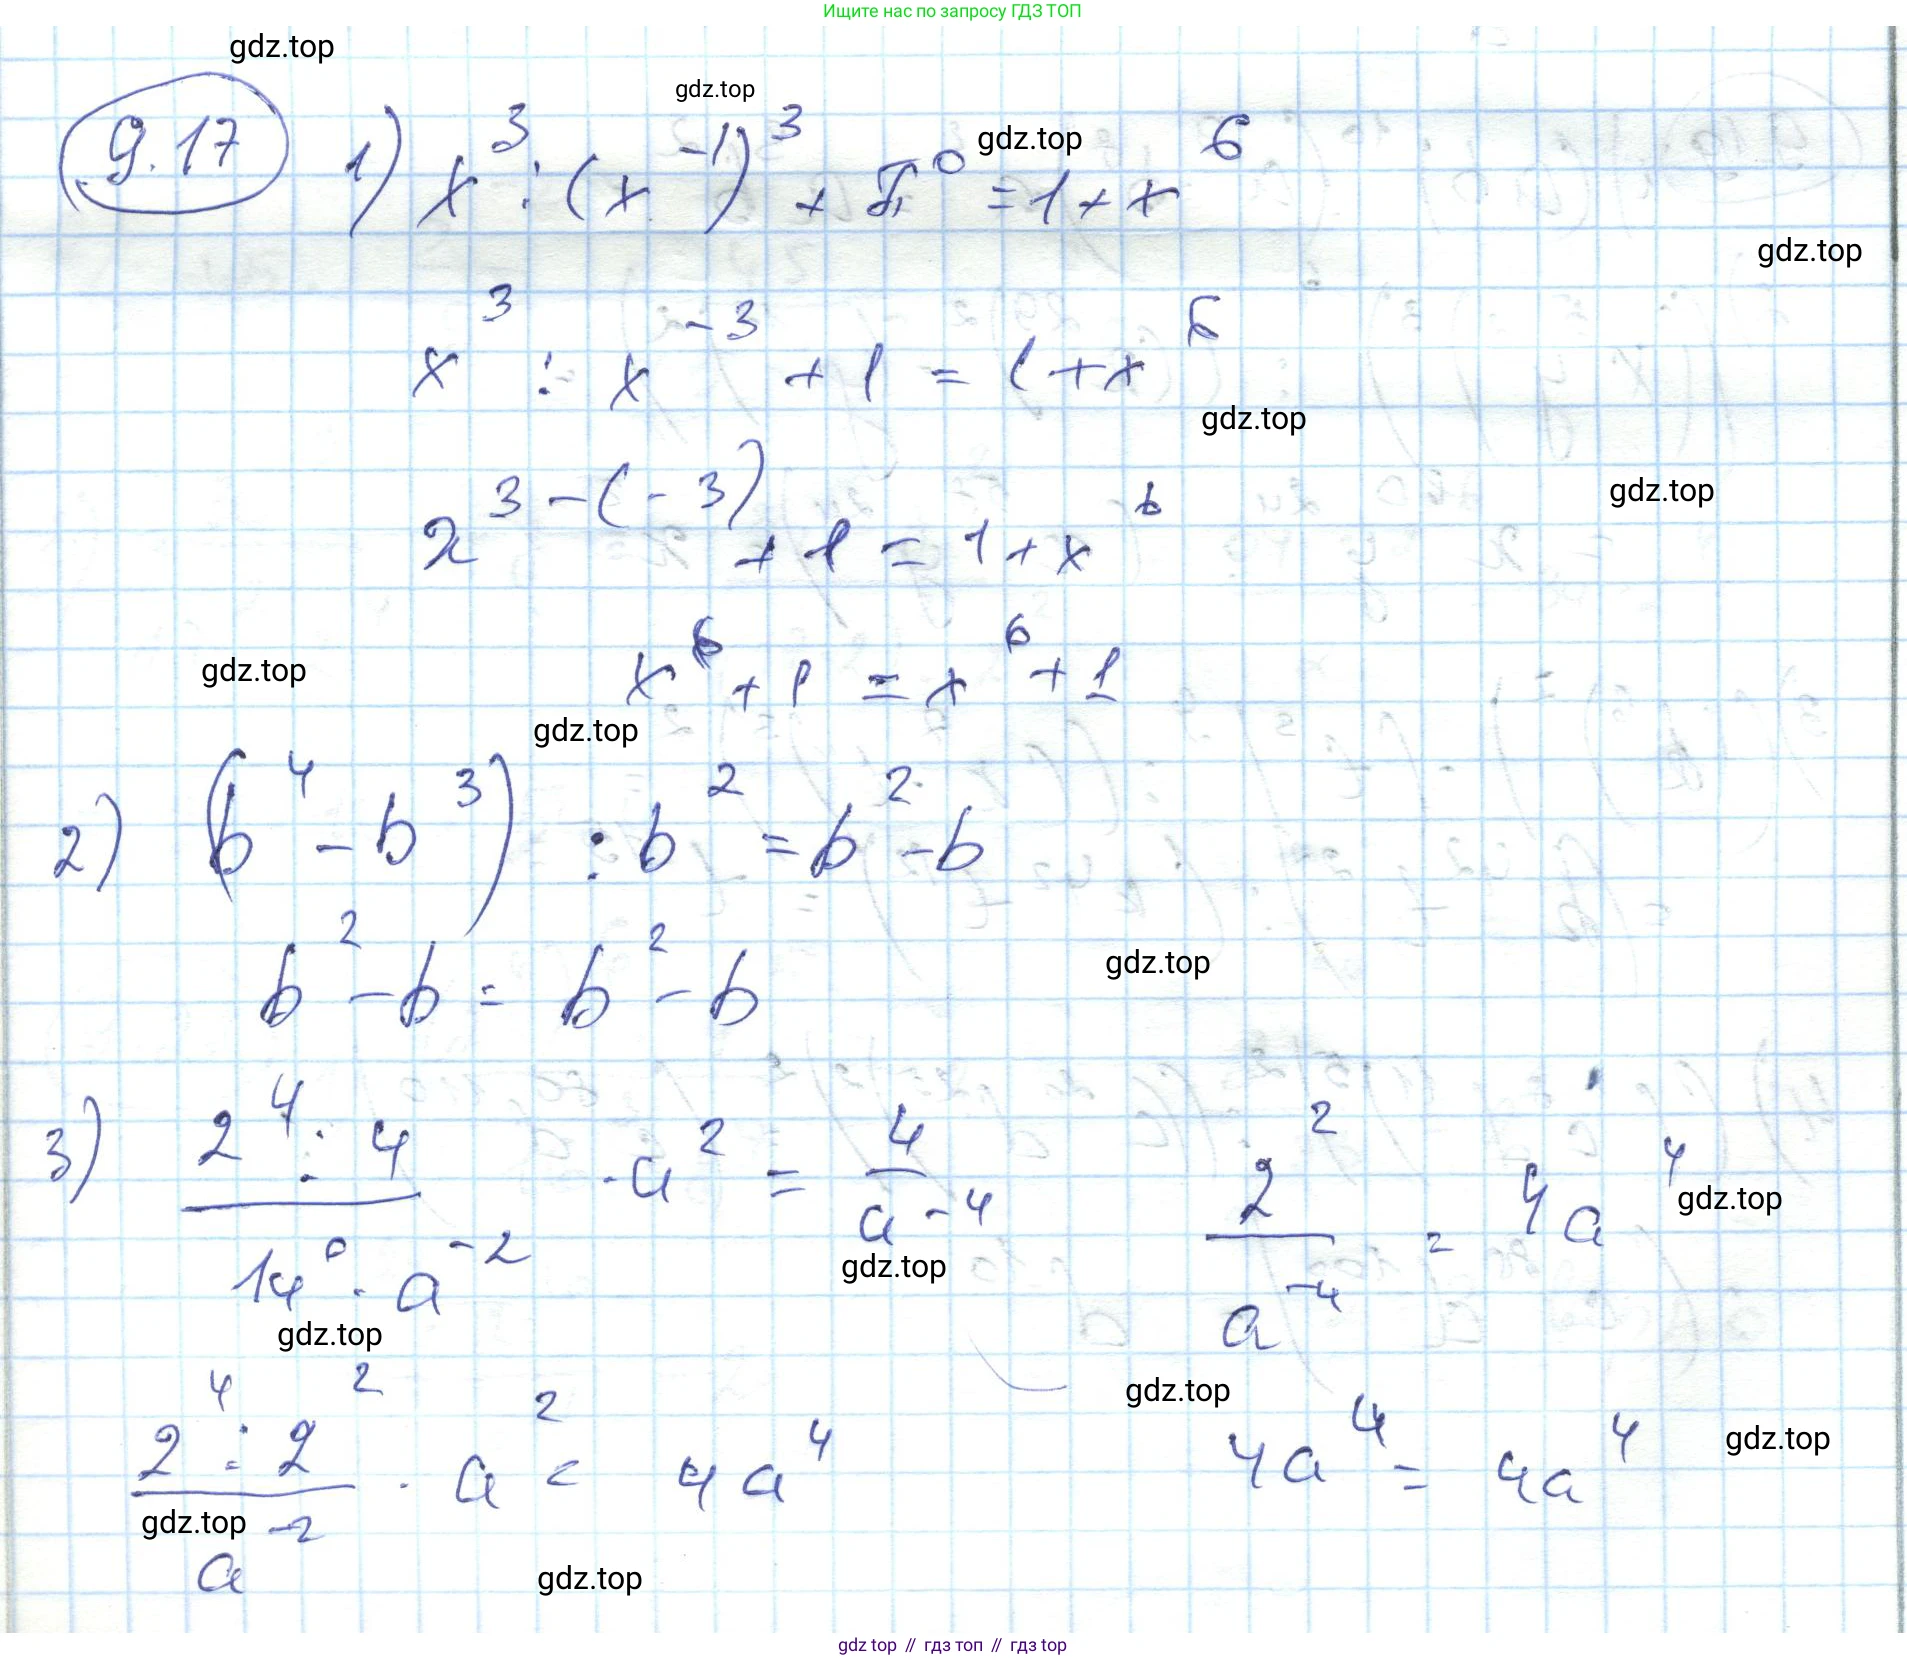 Ищите нас по запросу ГДЗ ТОП
gdz.top
gdz.top
9.17 1) x³ : (x⁻¹)³ + π⁰ = 1 + x⁶
gdz.top
gdz.top
x³ : x⁻³ + 1 = 1 + x⁶
gdz.top
gdz.top
x³⁻⁽⁻³⁾ + 1 = 1 + x⁶
gdz.top
x⁶ + 1 = x⁶ + 1
gdz.top
2) (b⁴ - b³) : b² = b² - b
gdz.top
b² - b = b² - b
3) (2⁴ : 4)/(14⁰ · a⁻²) · a² = 4/a⁻⁴ 2²/a⁻⁴ = 4a⁴
gdz.top
gdz.top
gdz.top
gdz.top
(2⁴ : 2²)/a⁻² · a² = 4a⁴ 4a⁴ = 4a⁴
gdz.top
gdz.top
gdz.top
gdz top // гдз топ // гдз top